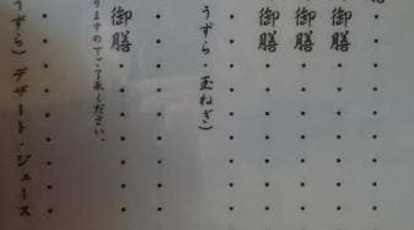 御膳・・・・・・
御膳・・・・・・
御膳・・・・・・
うずら・玉ねぎ）
御膳・・・・・
りますのでご了承ください。
うずら）デザート・ジュース